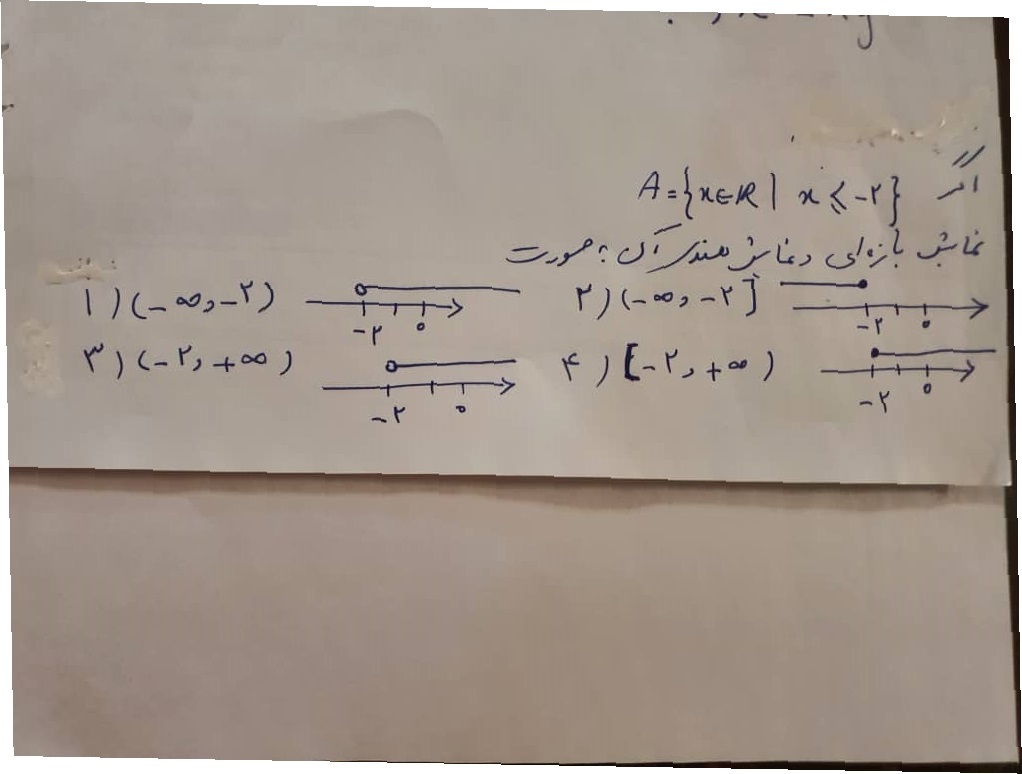 اگر A = {x ∈ ℝ | x ⩽ -۲}
نمایش بازه‌ای و نمایش هندسی آن به صورت
۱) (-∞, -۲) -۲ ۰ ۲) (-∞, -۲] -۲ ۰
۳) (-۲, +∞) -۲ ۰ ۴) [-۲, +∞) -۲ ۰